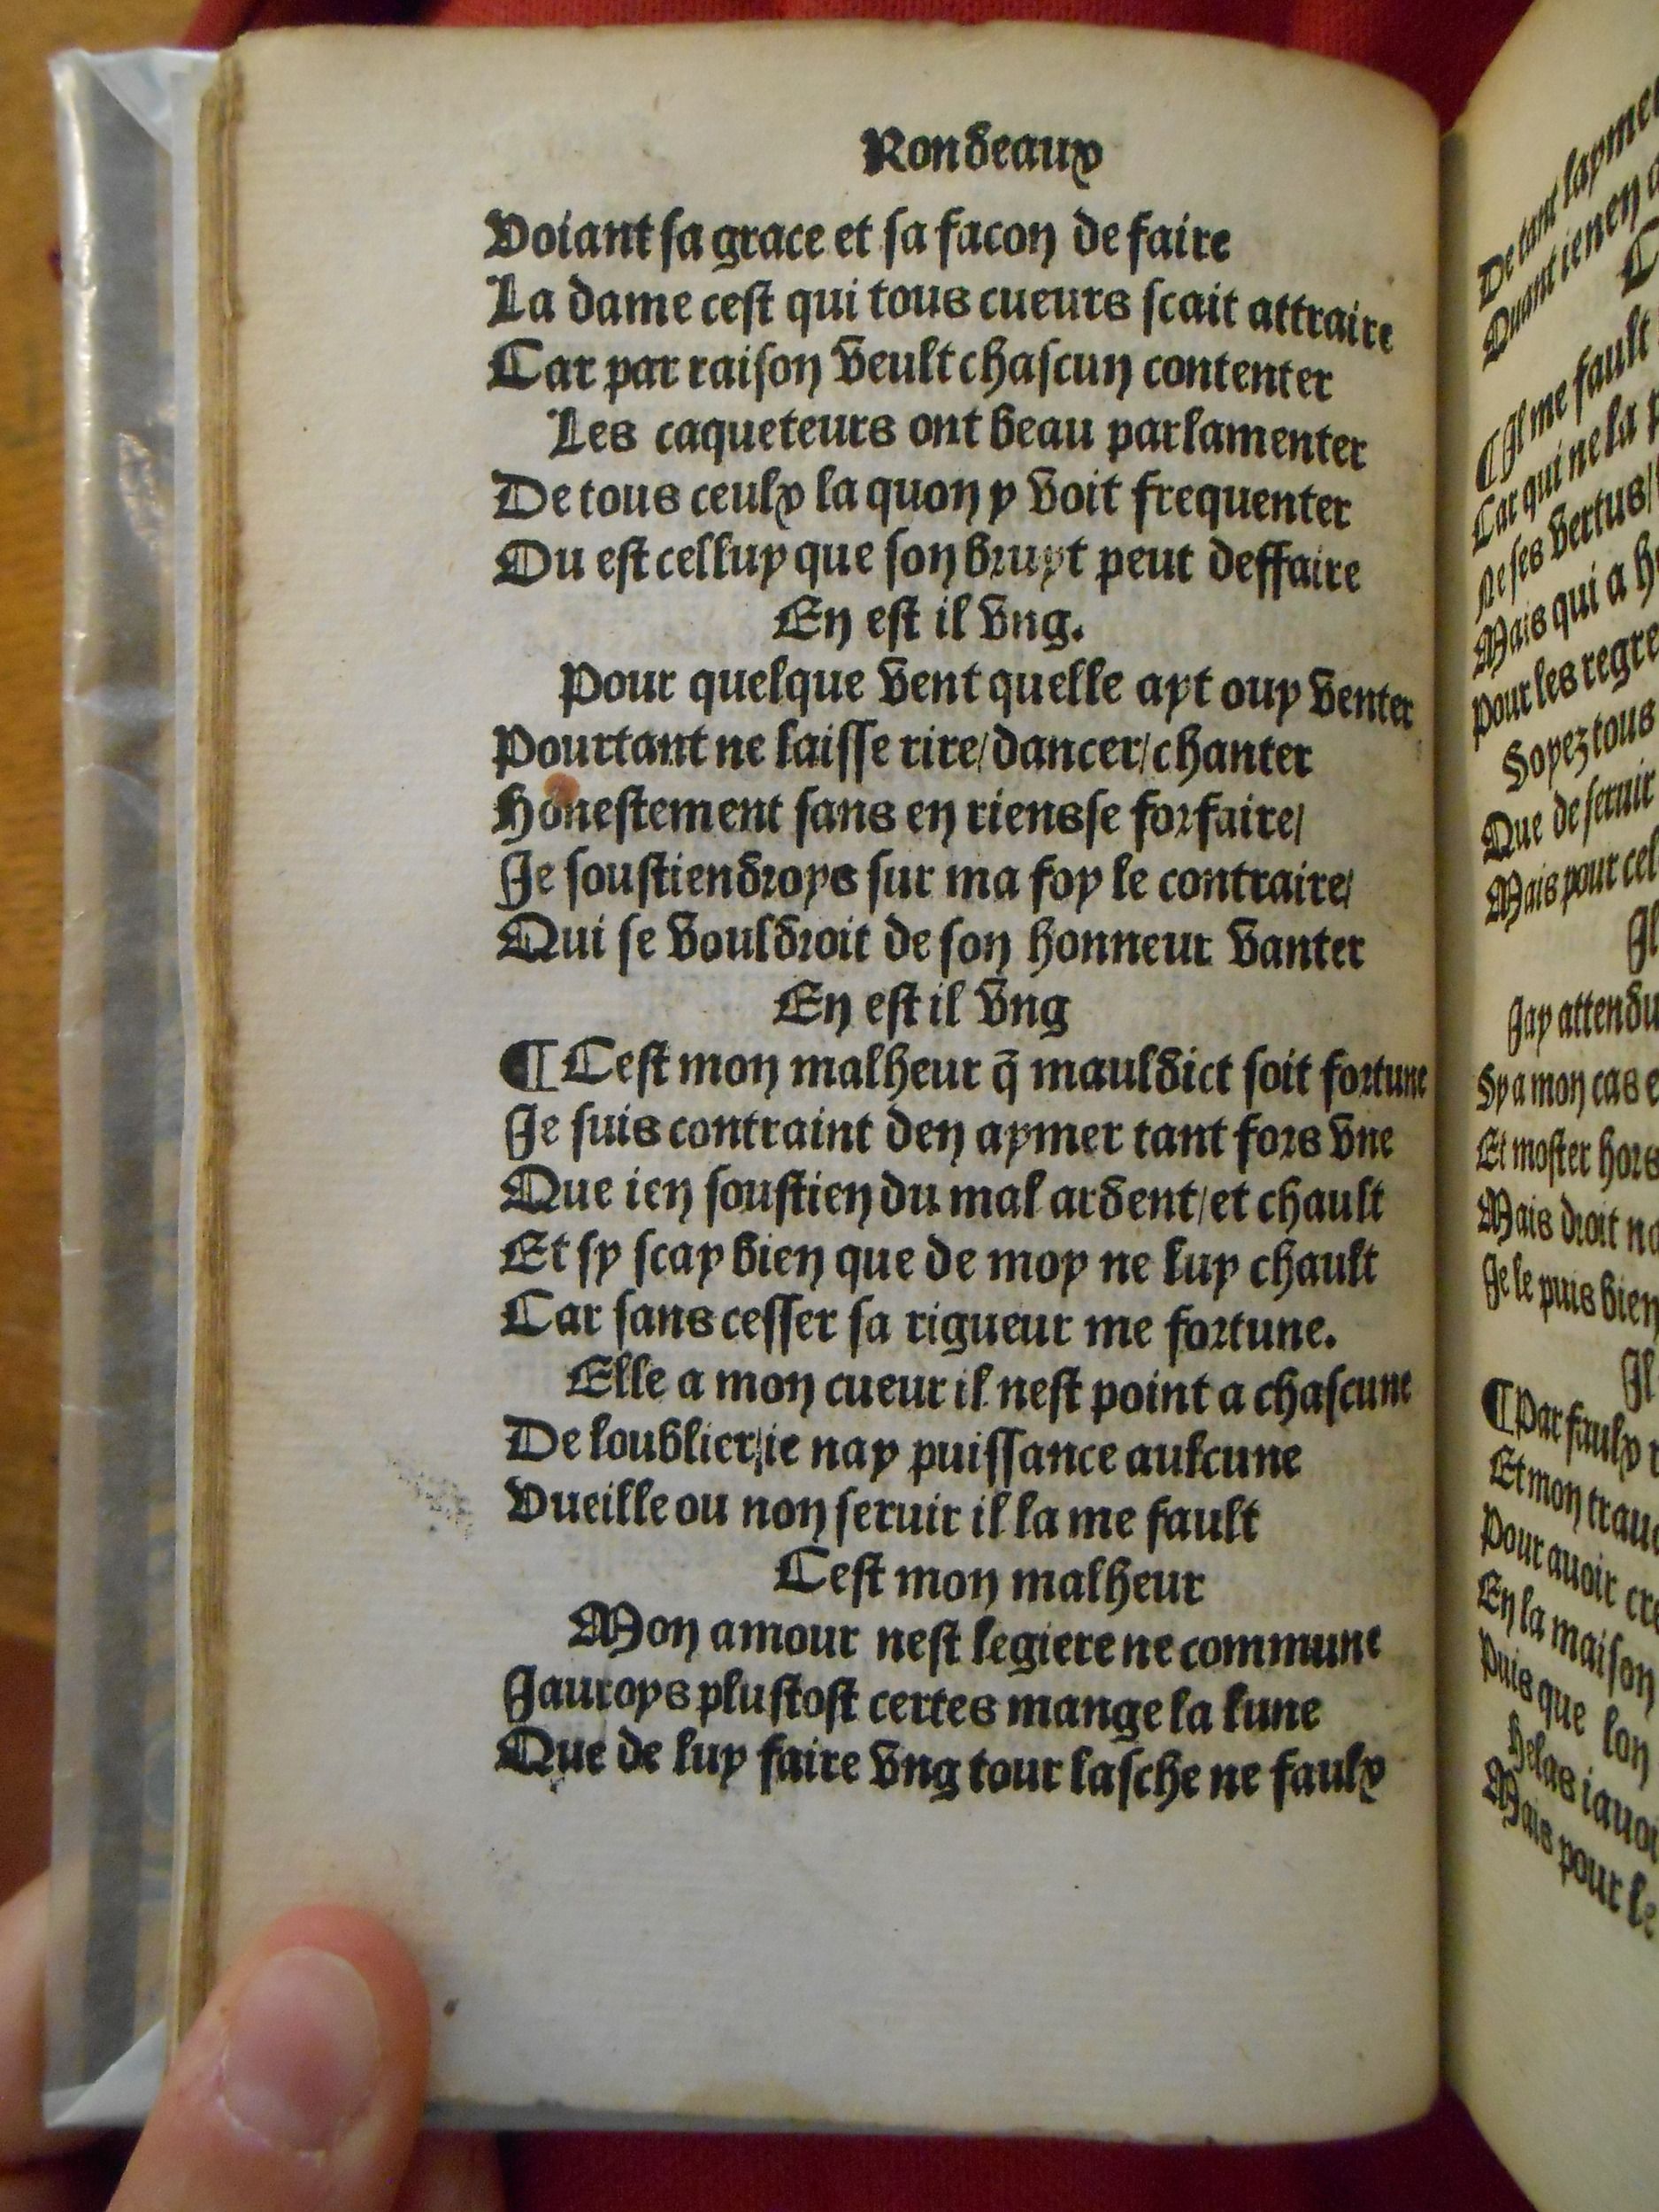 Rondeaux
Voiant sa grace et sa facon de faire
La dame cest qui tous cueurs scait attraire
Car par raison veult chascun contenter
Les caqueteurs ont beau parlamenter
De tous ceulx la quon y voit frequenter
Ou est celluy que son bruyt peut deffaire
En est il vng.
Pour quelque vent quelle ayt ouy venter
Pourtant ne laisse rire/dancer/chanter
Honestement sans en riens se forfaire/
Je soustiendroys sur ma foy le contraire/
Qui se vouldroit de son honneur vanter
En est il vng
¶ Cest mon malheur q̄ mauldict soit fortune
Je suis contraint den aymer tant fors vne
Que ien soustien du mal ardent/et chault
Et sy scay bien que de moy ne luy chault
Car sans cesser sa rigueur me fortune.
Elle a mon cueur il nest point a chascune
De loublier/ie nay puissance aulcune
Vueille ou non seruir il la me fault
Cest mon malheur
Mon amour nest legiere ne commune
Jauroys plustost certes mange la lune
Que de luy faire vng tour lasche ne faulx
De tant laymer
Quant ien en
Il me fault
Car qui ne la
Ne ses vertus/
Mais qui a
Pour les
Soyez tous
Que de seruir
Mais pour cel
Jl
Jay attendu
Sy a mon cas
Et moster hors
Mais droit
Je le puis bien
Jl
¶ Par faulx
Et mon
Pour auoir
En la maison
Puis que lon
Helas
Mais pour le